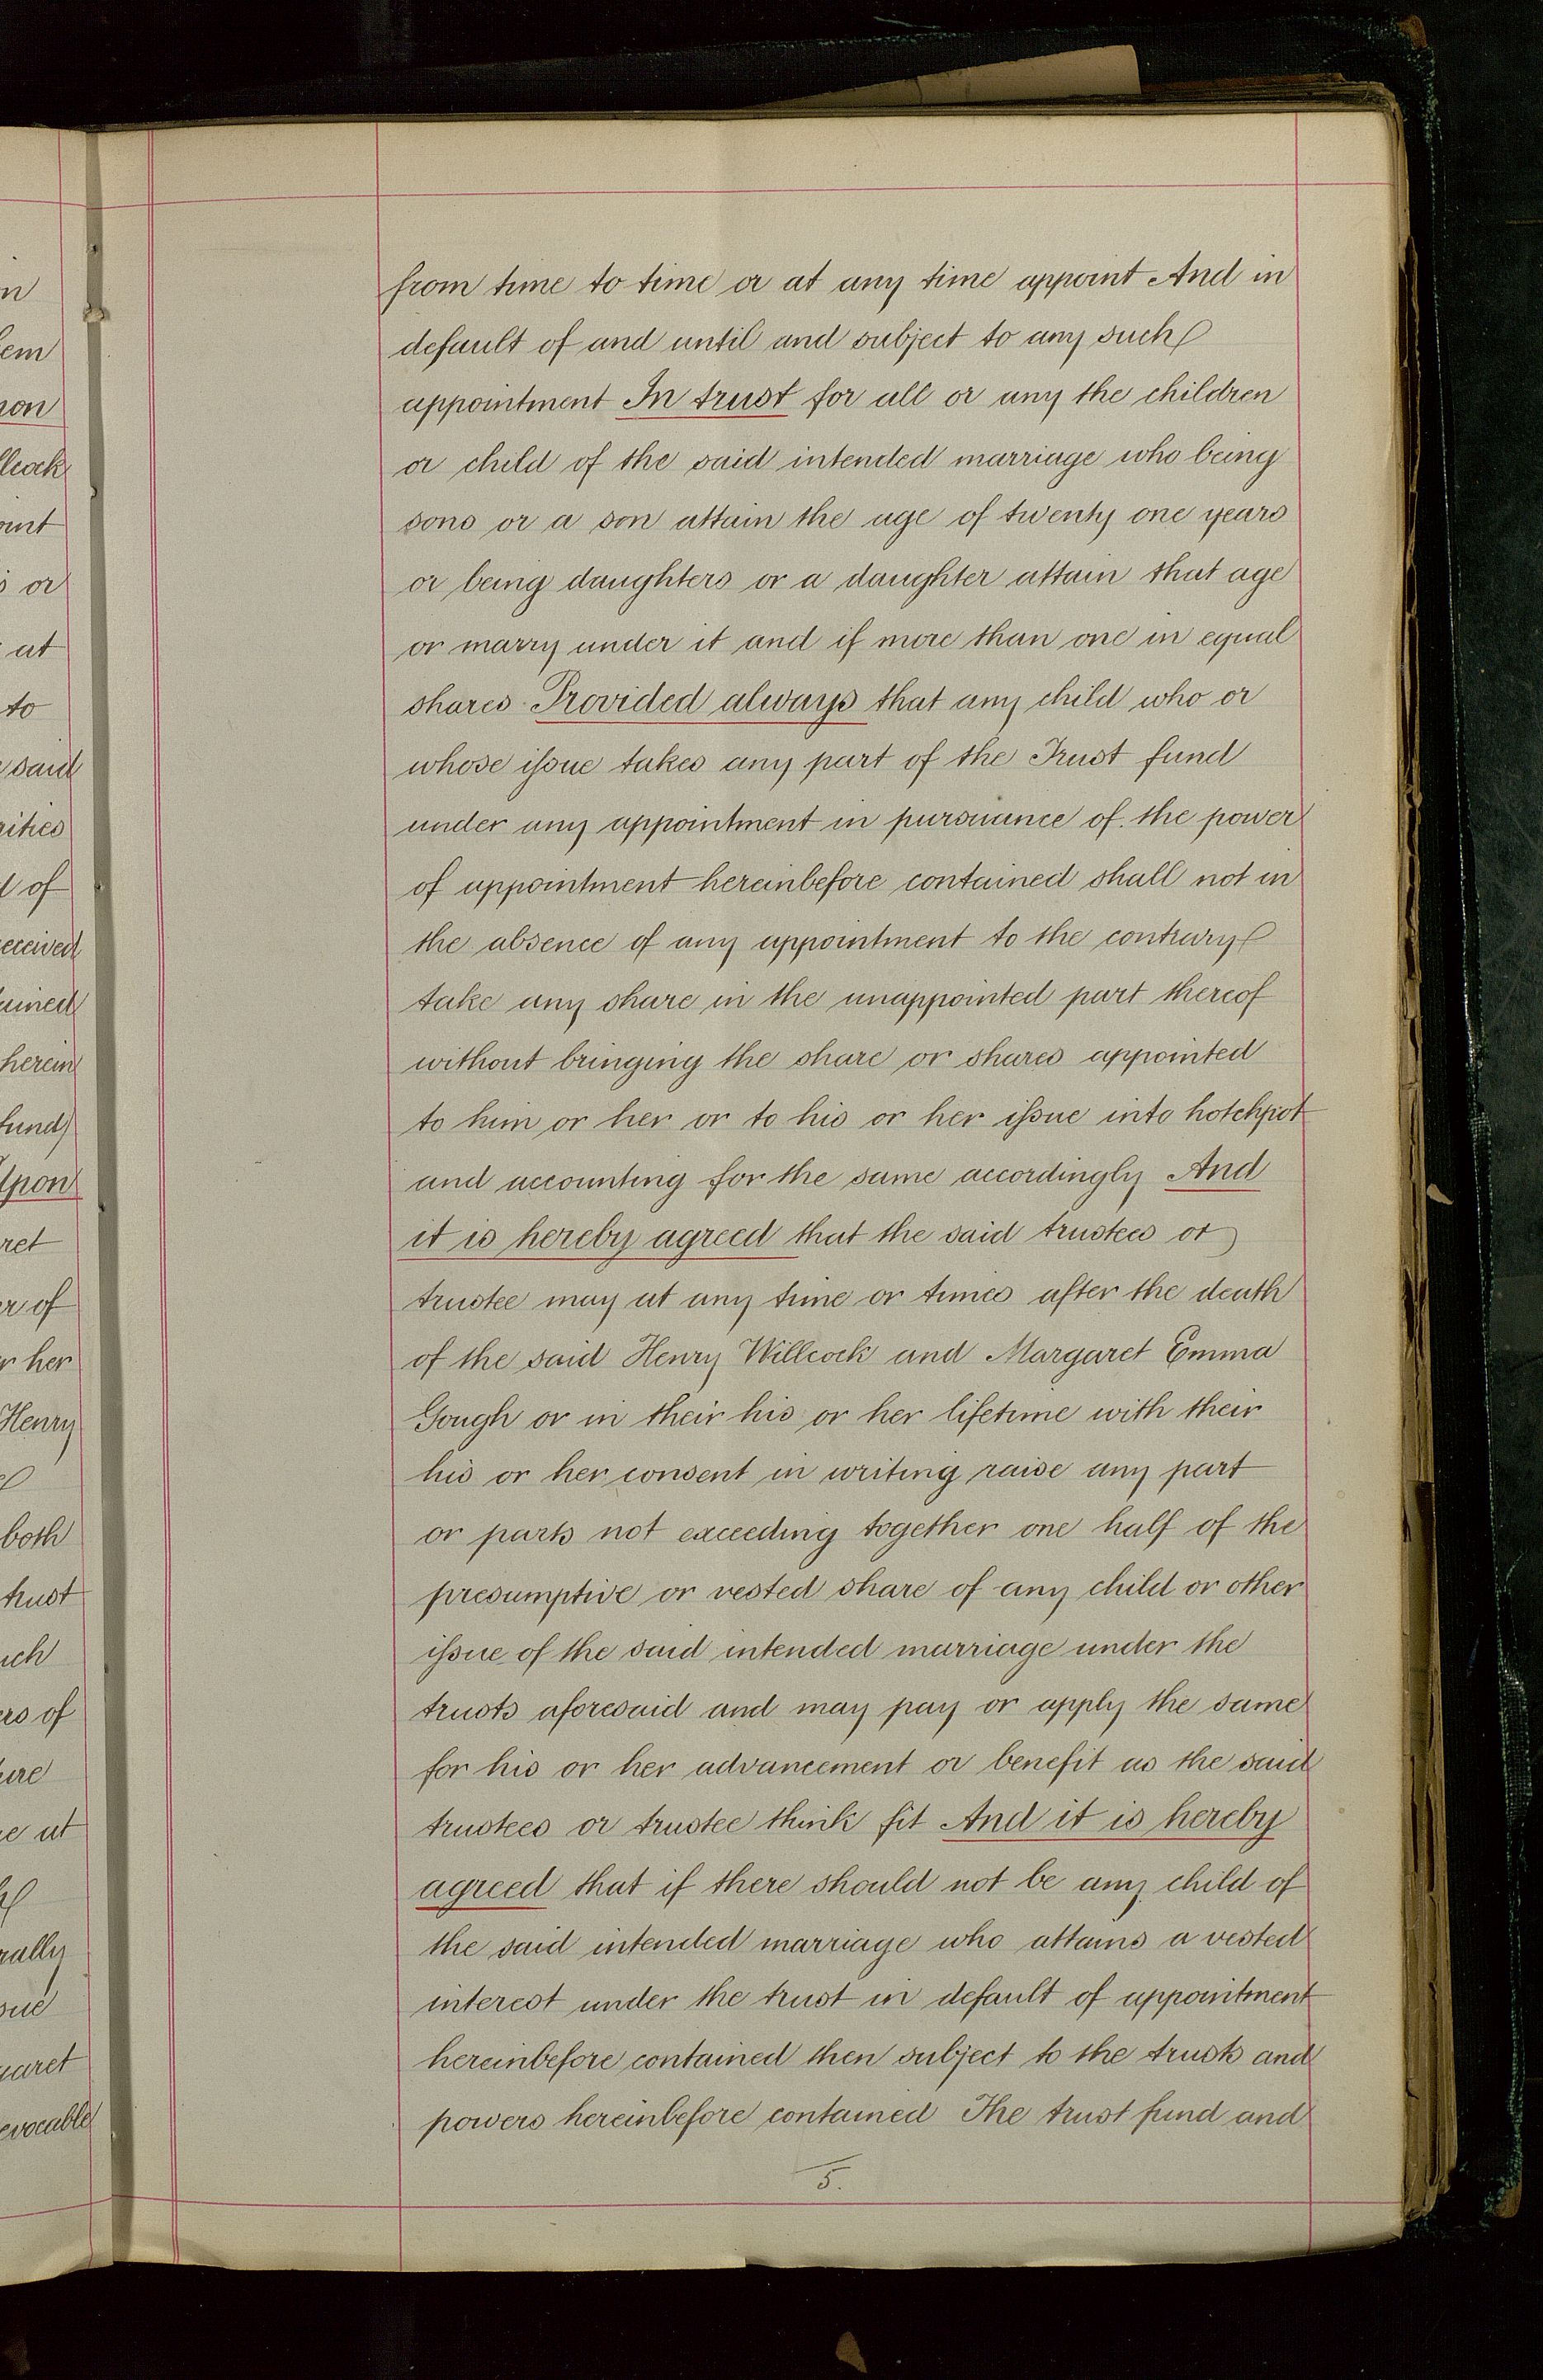 from time to time or at any time appoint And in
default of and until and subject to any such
appointment In trust for all or any the children
or child of the said intended marriage who being
sons or a son attain the age of twenty one years
or being daughters or a daughter attain that age
or marry under it and if more than one in equal
shares Provided always that any child who or
whose issue takes any part of the Trust fund
under any appointment in pursuance of the power
of appointment hereinbefore contained shall not in
the absence of any appointment to the contrary
take any share in the unappointed part thereof
without bringing the share or shares appointed
to him or her or to his or her issue into hotchpot
and accounting for the same accordingly And
it is hereby agreed that the said trustees or
trustee may at any time or times after the death
of the said Henry Willcock and Margaret Emma
Gough or in their his or her lifetime with their
his or her consent in writing raise any part
or parts not exceeding together one half of the
presumptive or vested share of any child or other
issue of the said intended marriage under the
trusts aforesaid and may pay or apply the same
for his or her advancement or benefit as the said
trustees or trustee think fit And it is hereby
agreed that if there should not be any child of
the said intended marriage who attains a vested
interest under the trust in default of appointment
hereinbefore contained then subject to the trusts and
powers hereinbefore contained The trust fund and
5.